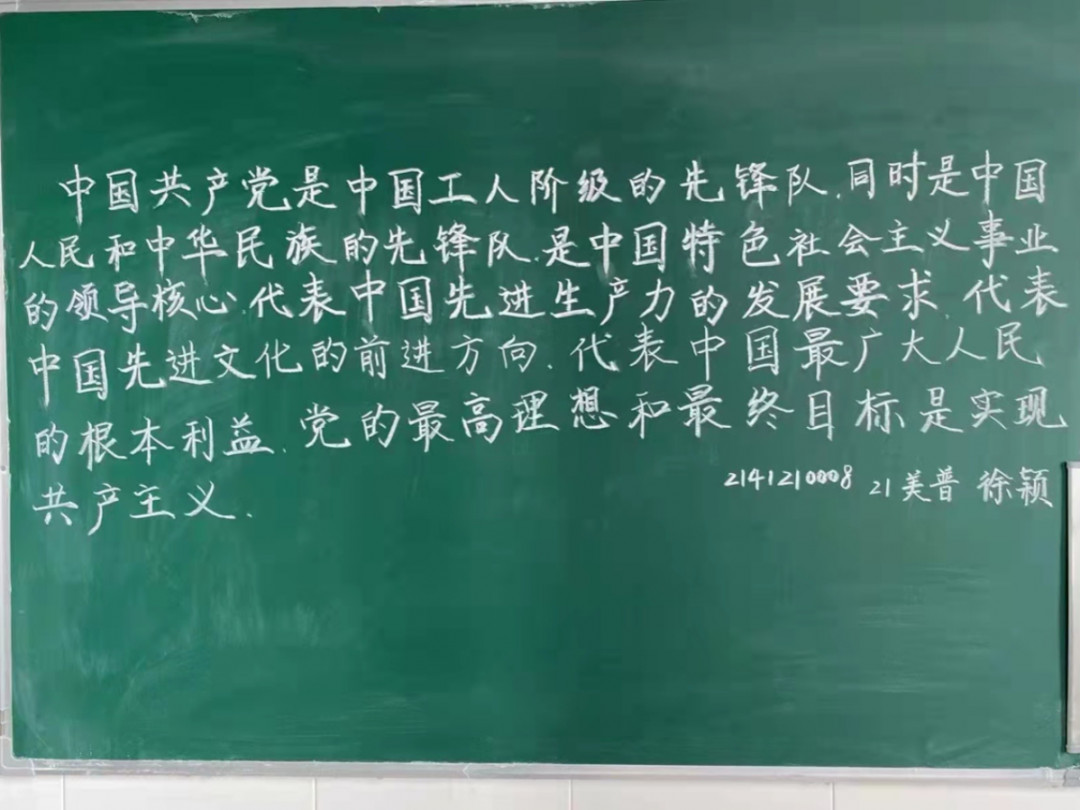 中国共产党是中国工人阶级的先锋队.同时是中国
人民和中华民族的先锋队.是中国特色社会主义事业
的领导核心.代表中国先进生产力的发展要求.代表
中国先进文化的前进方向.代表中国最广大人民
的根本利益.党的最高理想和最终目标是实现
共产主义.
2141210008 21美普 徐颖